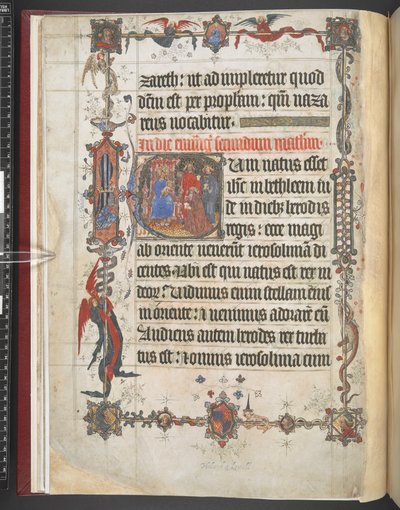 zareth: ut adimpleretur quod
dcm est per prophetam: qm naza
reus uocabitur.
In die secundum
Cum natus esset
ihc in bethleem iu
de in dieb herodis
regis: ecce magi
ab oriente uenerunt ierosolimā di
centes Ubi est qui natus est rex iu
deor: Uidimus enim stellam eius
in oriente: & uenimus adorare eū
Audiens autem herodes rex turba
tus est: & omnis ierosolima cum